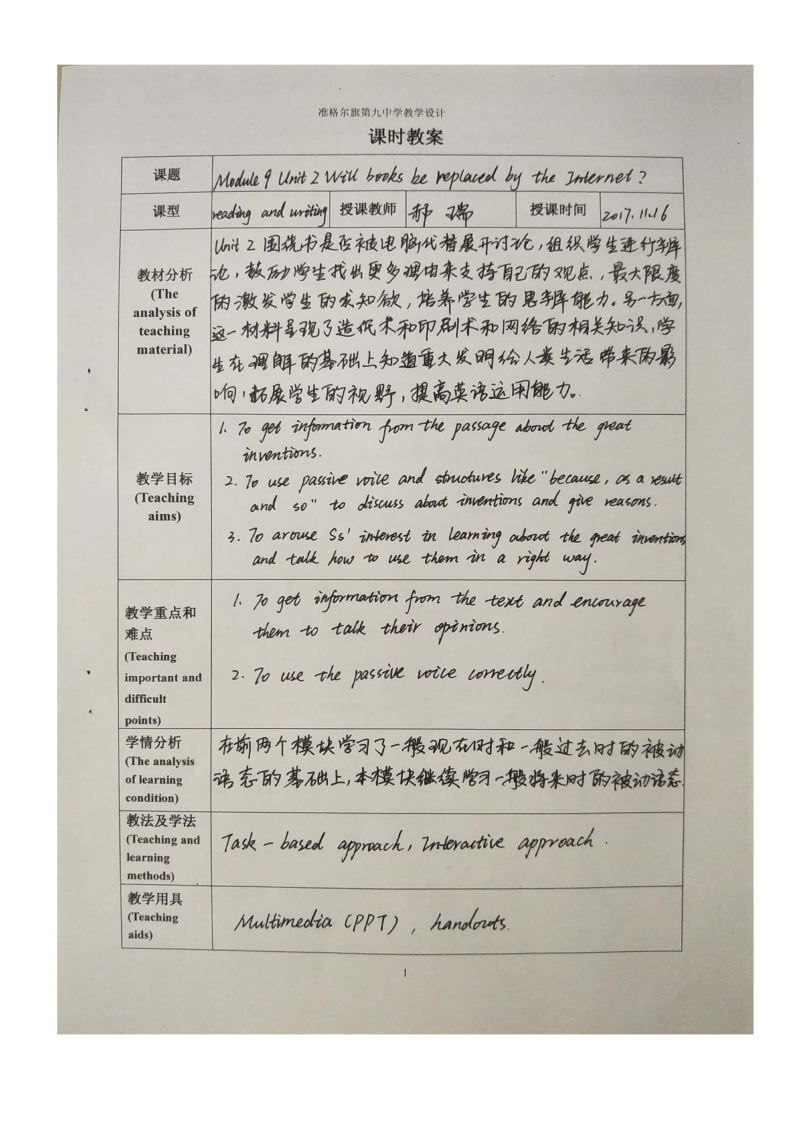 准格尔旗第九中学教学设计
课时教案
课题 Module 9 Unit 2 Will books be replaced by the Internet?
课型 reading and writing 授课教师 郝瑞 授课时间 2017.11.16
教材分析
(The
analysis of
teaching
material)
Unit 2 围绕书是否被电脑代替展开讨论，组织学生进行辩
论，鼓励学生找出更多理由来支持自己的观点，最大限度
的激发学生的求知欲，培养学生的思辨能力。另一方面，
这一材料呈现了造纸术和印刷术和网络的相关知识，学
生在理解的基础上知道重大发明给人类生活带来的影
响，拓展学生的视野，提高英语运用能力。
教学目标
(Teaching
aims)
1. To get information from the passage about the great
inventions.
2. To use passive voice and structures like "because, as a result
and so" to discuss about inventions and give reasons.
3. To arouse Ss' interest in learning about the great inventions
and talk how to use them in a right way.
教学重点和
难点
(Teaching
important and
difficult
points)
1. To get information from the text and encourage
them to talk their opinions.
2. To use the passive voice correctly.
学情分析
(The analysis
of learning
condition)
在前两个模块学习了一般现在时和一般过去时的被动
语态的基础上，本模块继续学习一般将来时的被动语态.
教法及学法
(Teaching and
learning
methods)
Task-based approach, Interactive approach.
教学用具
(Teaching
aids)
Multimedia (PPT), handouts.
1